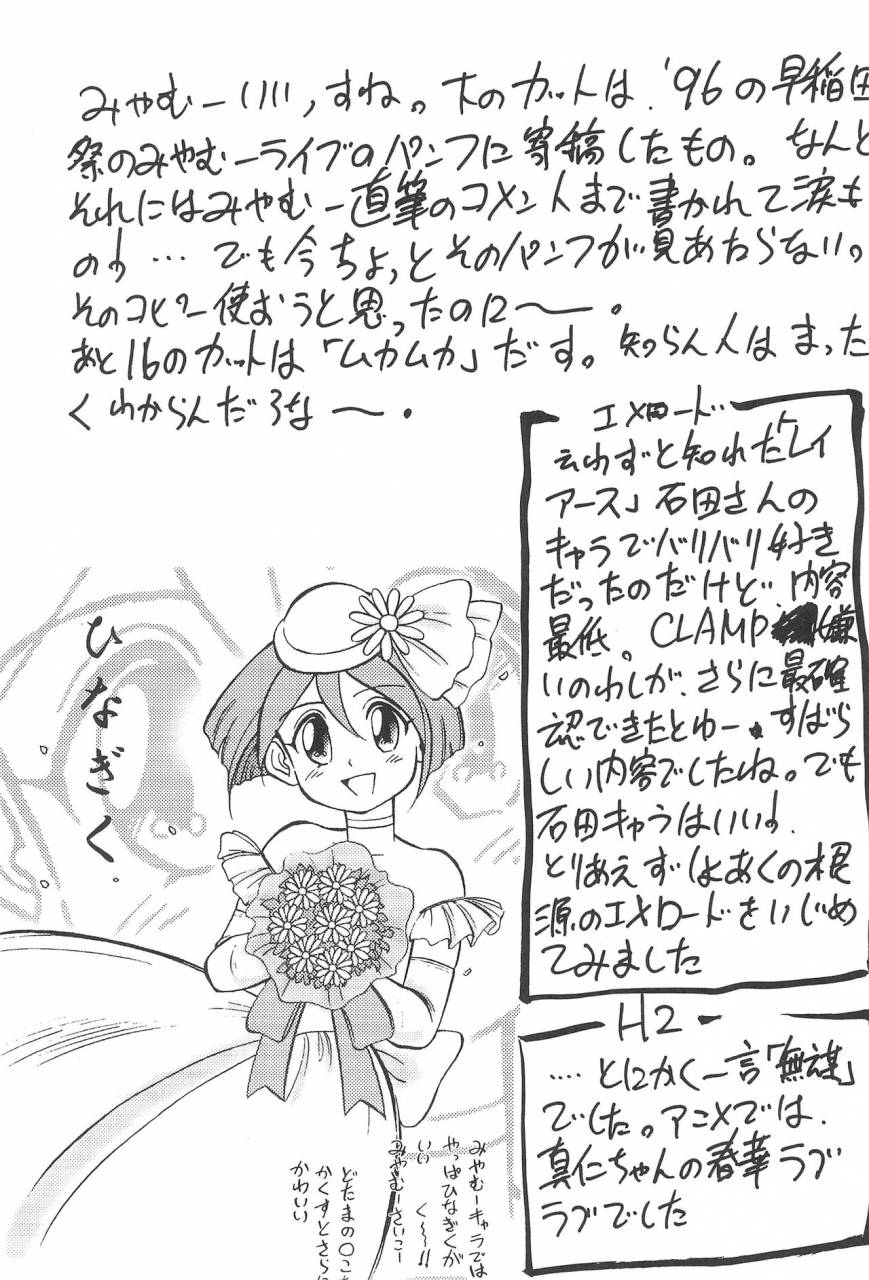 みゃむーいい，すね。下のカットは、'96の早稲田
祭のみやむーライブのパンフに寄稿したもの。なんと
それにはみやむー直筆のコメントまで書かれて涙も
のの… でも今ちょっとそのパンフが見あたらない。
そのコピー使おうと思ったのに〜。
あと16のカットは「ムカムカ」だす。知らん人はまった
くわからんだろな〜。
エメロード
云わずと知れた「レイ
アース」石田さんの
キャラでバリバリ好き
だったのだけど、内容
最低。CLAMP嫌
いのわしが、さらに最確
認できたとゆー。すばら
しい内容でしたね。でも
石田キャラはいいの、
とりあえずはあくの根
源のエメロードをいじめ
てみました
H2
‥‥とにかく一言「無謀」
でした。アニメでは、
真仁ちゃんの春華ラブ
ラブでした
ひなぎく
みやむーキャラでは
やっぱひなぎくが
いい く〜!!
みやむーさいこー
どたまの〇こち
かくすとさらに
かわいい